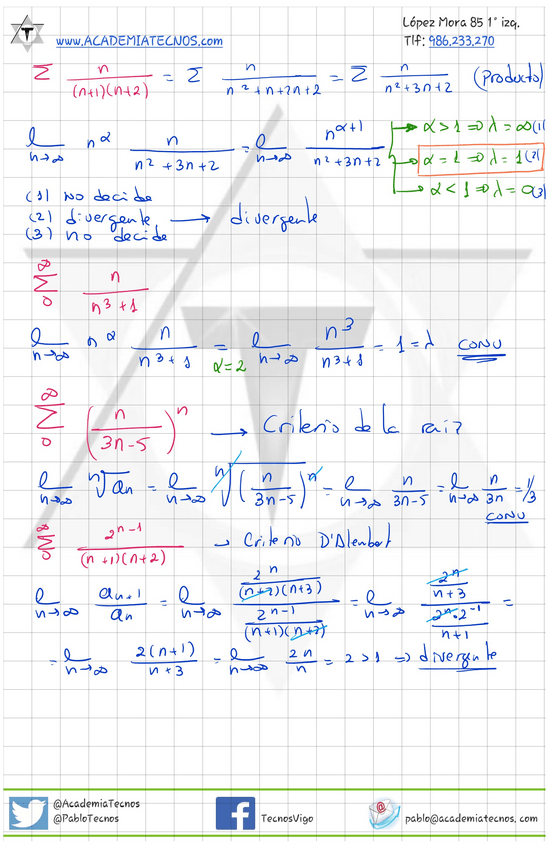 López Mora 85 1º izq.
www.ACADEMIATECNOS.com
Tlf: 986.233.270
Σ n/((n+1)(n+2)) = Σ n/(n²+n+2n+2) = Σ n/(n²+3n+2) (producto)
lim n→∞ n^α n/(n²+3n+2) = lim n→∞ n^(α+1)/(n²+3n+2)
α>1 ⇒ λ=∞(1)
α=1 ⇒ λ=1(2)
α<1 ⇒ λ=0(3)
(1) no decide
(2) divergente → divergente
(3) no decide
Σ 0 ∞ n/(n³+1)
lim n→∞ n^α n/(n³+1) = α=2 lim n→∞ n³/(n³+1) = 1 = λ CONV
Σ 0 ∞ (n/(3n-5))^n → Criterio de la raiz
lim n→∞ ⁿ√an = lim n→∞ ⁿ√(n/(3n-5))^n = lim n→∞ n/(3n-5) = lim n→∞ n/3n = 1/3
CONV
Σ 0 ∞ 2^(n-1)/((n+1)(n+2)) → Criterio D'Alembert
lim n→∞ a(n+1)/an = lim n→∞ (2^n/((n+2)(n+3)))/(2^(n-1)/((n+1)(n+2))) = lim n→∞ (2^n/(n+3))/(2^n·2^-1/(n+1)) =
= lim n→∞ 2(n+1)/(n+3) = lim n→∞ 2n/n = 2>1 ⇒ divergente
@AcademiaTecnos
@PabloTecnos
TecnosVigo
pablo@academiatecnos.com